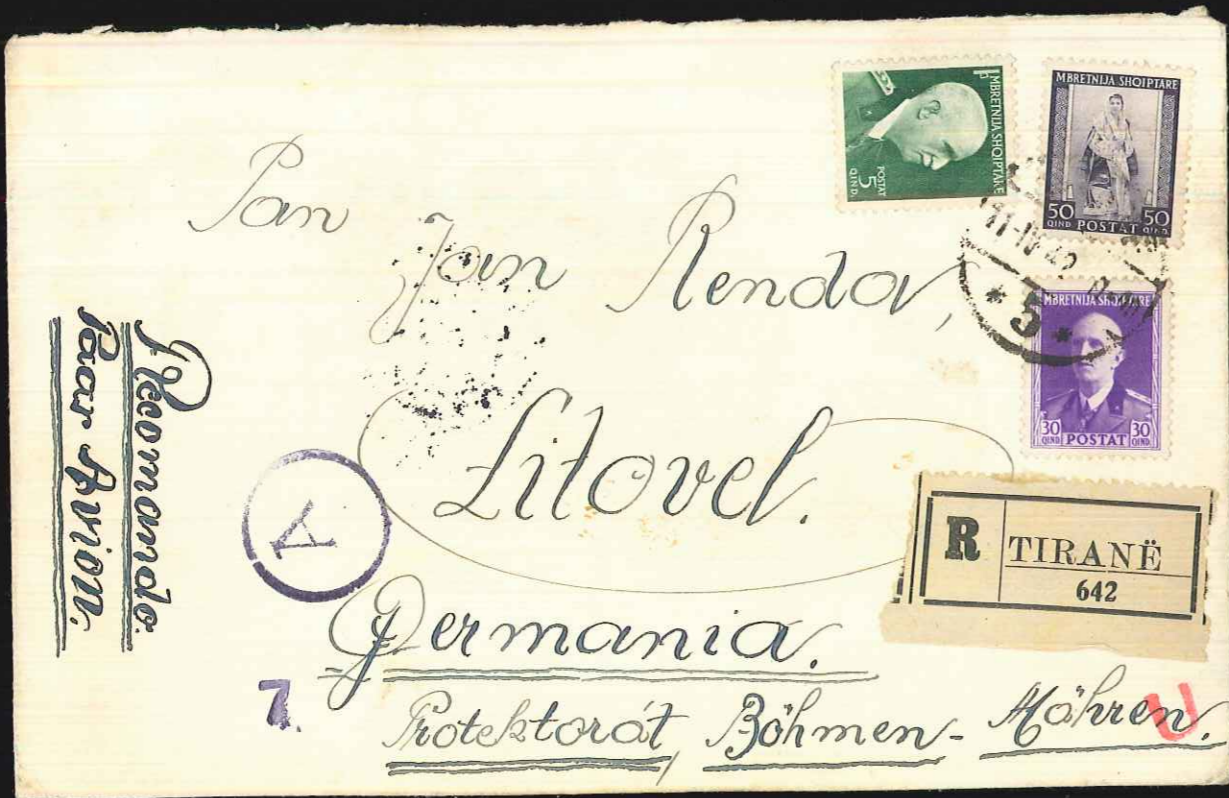 MBRETNIJA SHQIPTARE
POSTAT
5
QIND.
MBRETNIJA SHQIPTARE
50 50
QIND. POSTAT QIND.
11-IV-42
* 5 *
MBRETNIJA SHQIPTARE
30 30
QIND POSTAT QIND.
Pan
Jan Renda,
Litovel.
Germania.
Protektorát, Böhmen - Mähren.
Recomando.
Paar Avion,
A
7.
R TIRANË
642
U